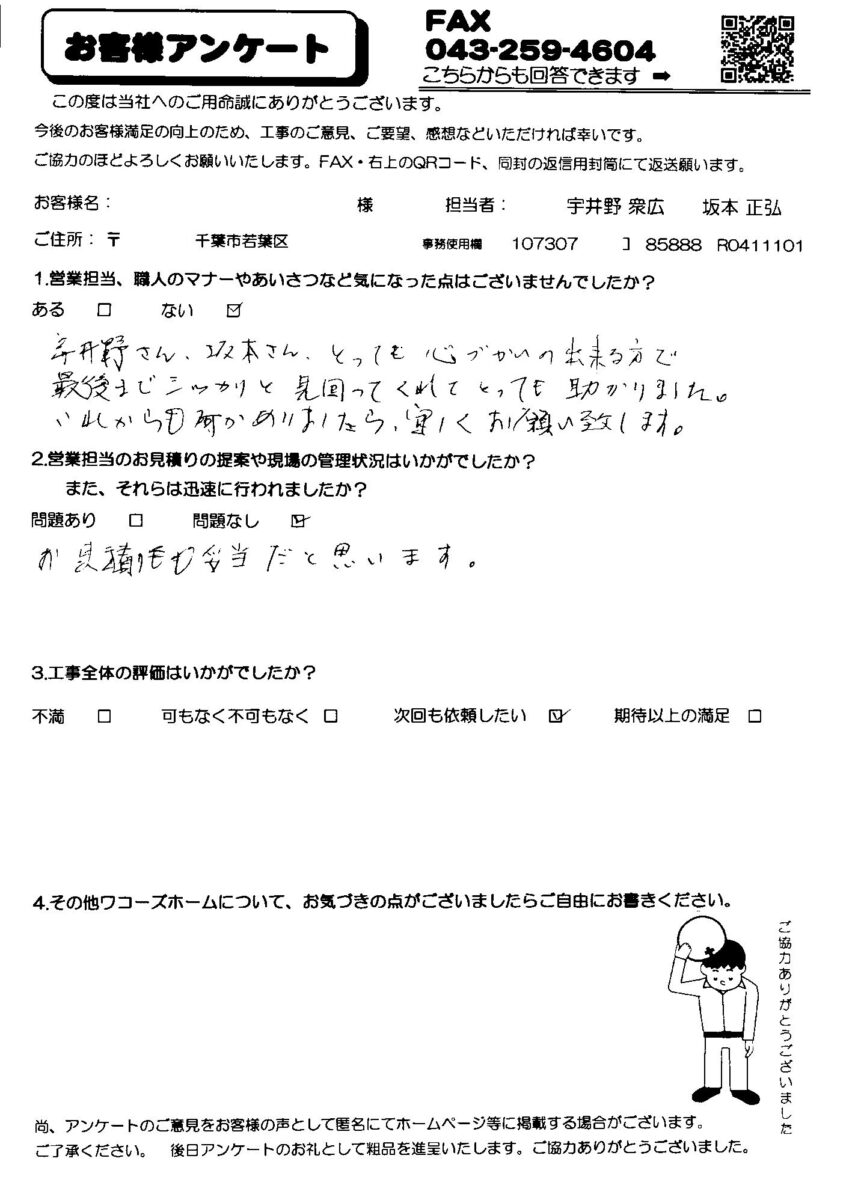 お客様アンケート
FAX
043-259-4604
こちらからも回答できます ➡
この度は当社へのご用命誠にありがとうございます。
今後のお客様満足の向上のため、工事のご意見、ご要望、感想などいただければ幸いです。
ご協力のほどよろしくお願いいたします。FAX・右上のQRコード、同封の返信用封筒にて返送願います。
お客様名： 様 担当者： 宇井野 衆広 坂本 正弘
ご住所：〒 千葉市若葉区 事務使用欄 107307 コ 85888 R0411101
1.営業担当、職人のマナーやあいさつなど気になった点はございませんでしたか？
ある □ ない ☑
宇井野さん、坂本さん、とっても心づかいの出来る方で
最後までシッカリと見回ってくれてとっても助かりました。
これからも何かありましたら、宜しくお願い致します。
2.営業担当のお見積りの提案や現場の管理状況はいかがでしたか？
また、それらは迅速に行われましたか？
問題あり □ 問題なし ☑
お見積りも妥当だと思います。
3.工事全体の評価はいかがでしたか？
不満 □ 可もなく不可もなく □ 次回も依頼したい ☑ 期待以上の満足 □
4.その他ワコーズホームについて、お気づきの点がございましたらご自由にお書きください。
ご協力ありがとうございました
尚、アンケートのご意見をお客様の声として匿名にてホームページ等に掲載する場合がございます。
ご了承ください。 後日アンケートのお礼として粗品を進呈いたします。ご協力ありがとうございました。